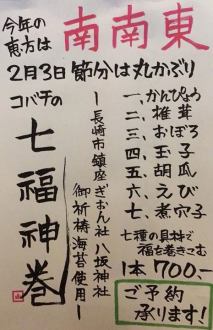 今年の
恵方は
南南東
2月3日 節分は丸かぶり
コバチの
七福神巻
長崎市鎮座ぎおん社 八坂神社
御祈祷海苔使用
一、かんぴょう
二、椎茸
三、おぼろ
四、玉子
五、胡瓜
六、えび
七、煮穴子
七種の具材で
福を巻きこむ
1本700-
ご予約
承ります!